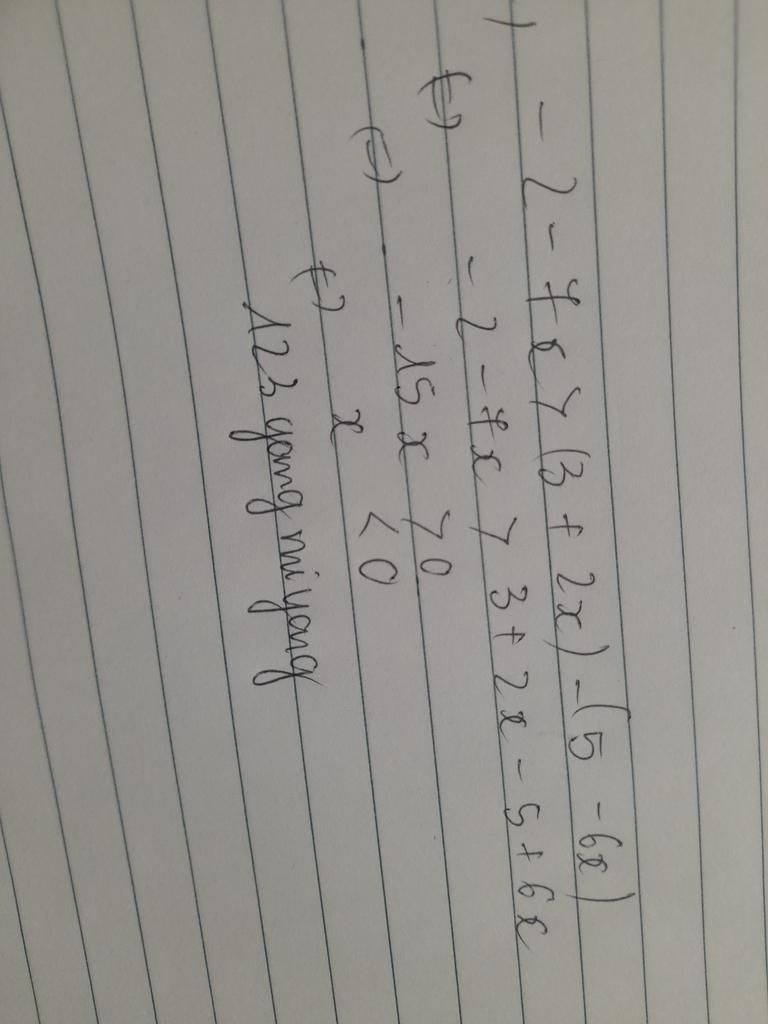 ) - 2 - 7x > (3 + 2x) - (5 - 6x)
(=) - 2 - 7x > 3 + 2x - 5 + 6x
(=) - 15x > 0
(=) x < 0
123 yang mi yang